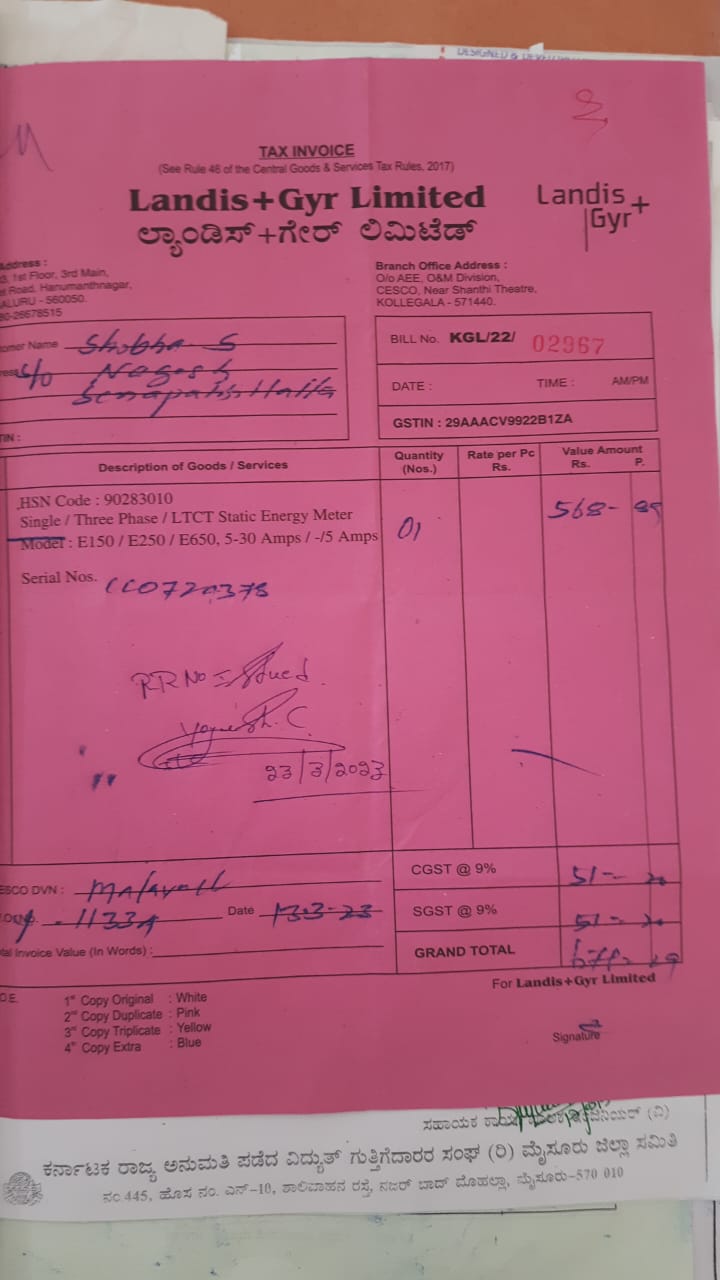 TAX INVOICE
(See Rule 46 of the Central Goods & Services Tax Rules, 2017)
Landis+Gyr Limited
ಲ್ಯಾಂಡಿಸ್+ಗೇರ್ ಲಿಮಿಟೆಡ್
Landis
Gyr+
Address :
1st Floor, 3rd Main,
Road, Hanumanthnagar,
ALURU - 560050.
80-26678515
Branch Office Address :
O/o AEE, O&M Division,
CESCO, Near Shanthi Theatre,
KOLLEGALA - 571440.
omer Name Shobha S
C/o Nagesh
BILL No. KGL/22/ 02967
DATE : TIME : AM/PM
GSTIN : 29AAACV9922B1ZA
TIN :
Description of Goods / Services
Quantity (Nos.)
Rate per Pc Rs.
Value Amount Rs. P.
HSN Code : 90283010
Single / Three Phase / LTCT Static Energy Meter
Model : E150 / E250 / E650, 5-30 Amps / -/5 Amps
01
568-
Serial Nos.
RR No Issued
Yogesh. C.
23/3/2023
ESCO DVN : Malavalli
Date 13-3-23
tal Invoice Value (In Words) :
CGST @ 9% 51-20
SGST @ 9% 51-20
GRAND TOTAL
For Landis+Gyr Limited
O.E.
1st Copy Original : White
2nd Copy Duplicate : Pink
3rd Copy Triplicate : Yellow
4th Copy Extra : Blue
Signature
ಕರ್ನಾಟಕ ರಾಜ್ಯ ಅನುಮತಿ ಪಡೆದ ವಿದ್ಯುತ್ ಗುತ್ತಿಗೆದಾರರ ಸಂಘ (ರಿ) ಮೈಸೂರು ಜಿಲ್ಲಾ ಸಮಿತಿ
ನಂ 445, ಹೊಸ ನಂ. ಎನ್-10, ಶಾಲಿವಾಹನ ರಸ್ತೆ, ನಜರ್ ಬಾದ್ ಮೊಹಲ್ಲಾ, ಮೈಸೂರು-570 010